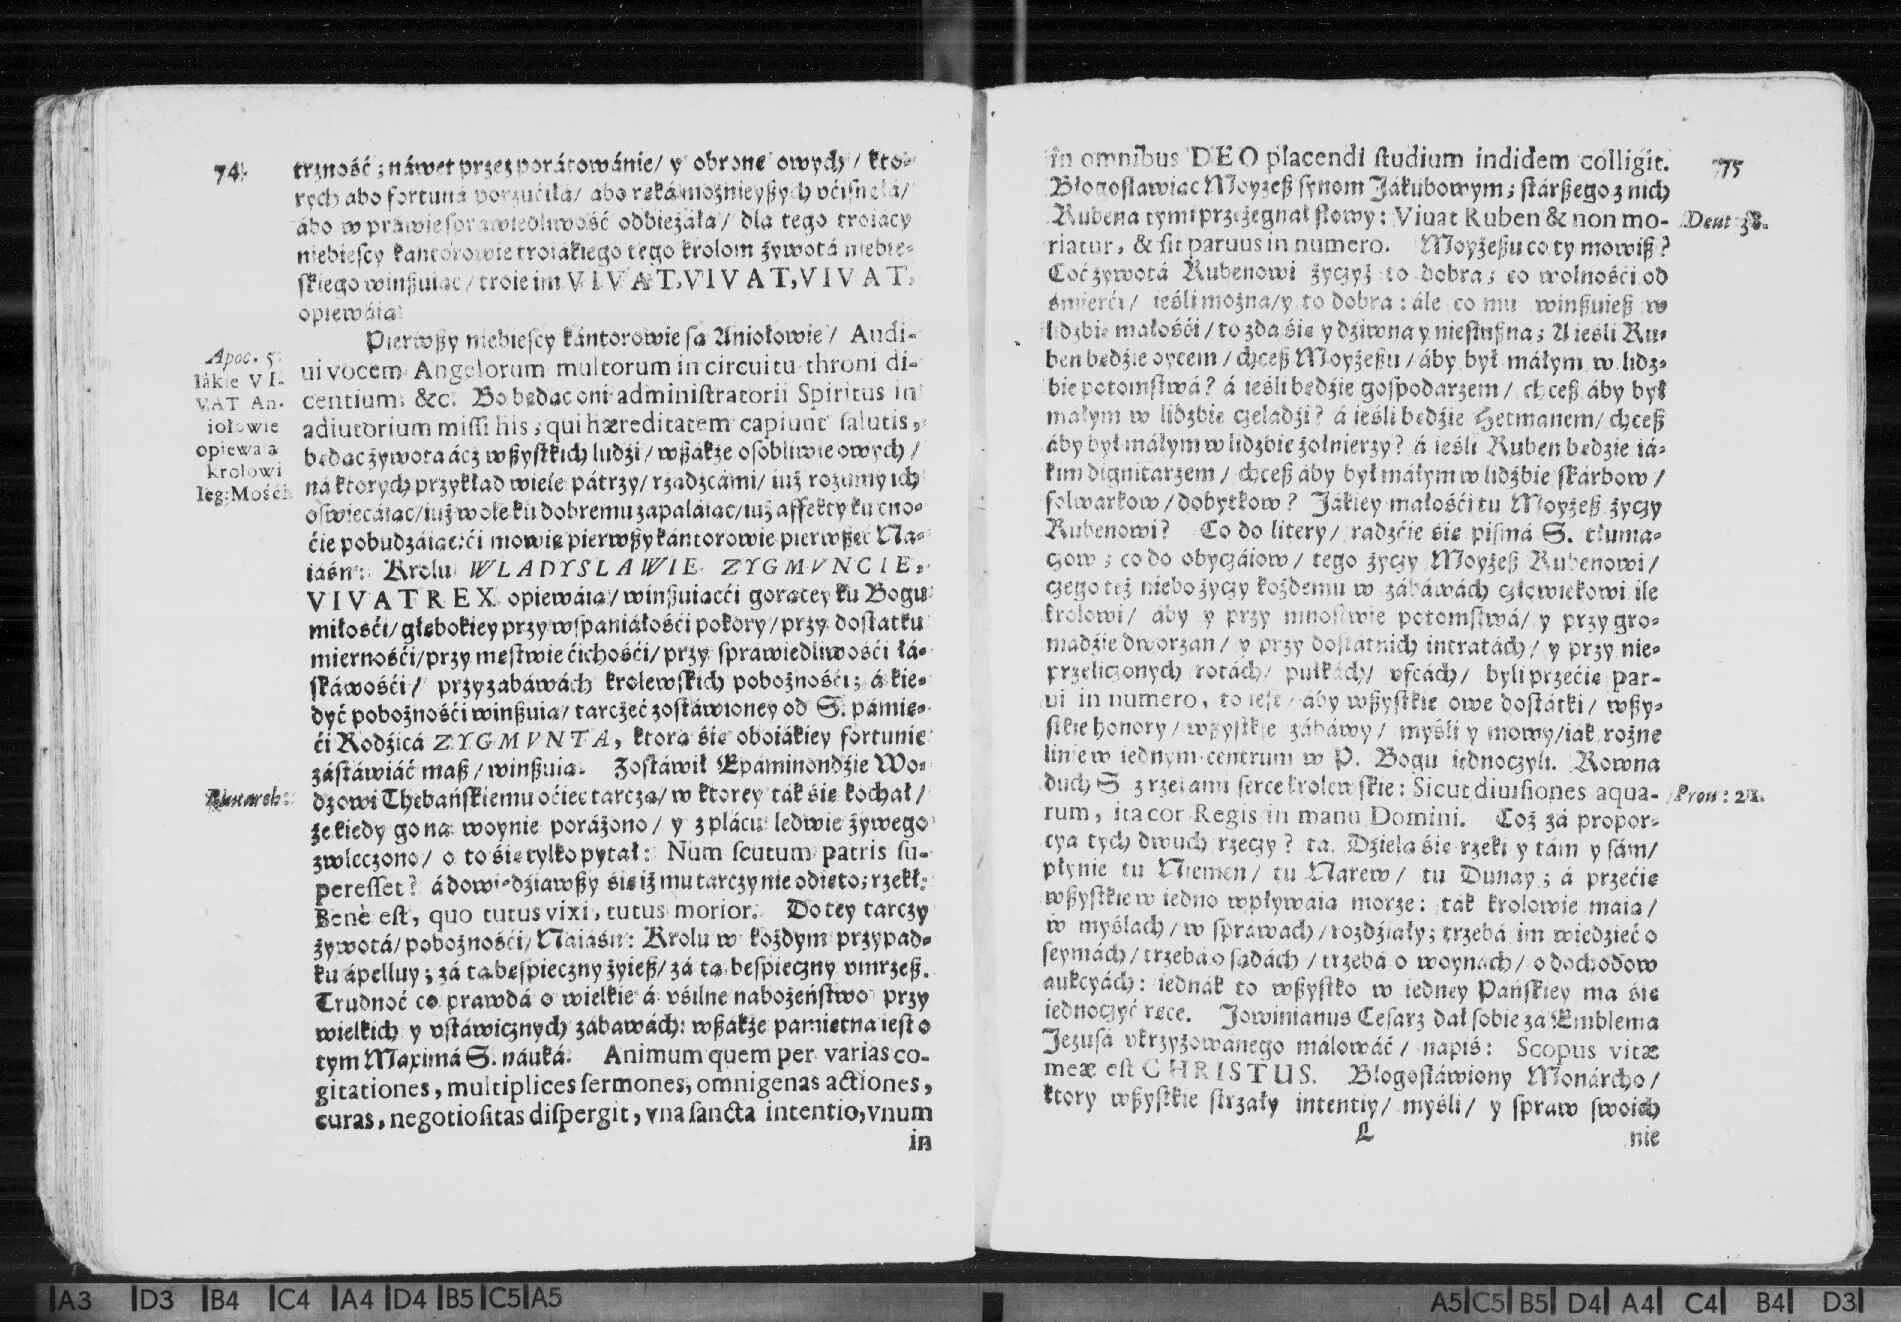 74.
trzność; náwet przez porátowánie/ y obronę owych/ kto-
rych abo fortuná porzućiłá/ abo ręká możnieyßych vćisnęłá/
ábo w práwie spráwiedliwość odbieżáłá/ dla tego troiacy
niebiescy kantorowie troiákiego tego krolom żywotá niebie-
skiego winßuiąc/ troie im VIVAT, VIVAT, VIVAT,
opiewáią.
Pierwßy niebiescy kántorowie są Aniołowie/ Audi-
ui vocem Angelorum multorum in circuitu throni di-
centium. &c. Bo będąc oni administratorii Spiritus in
adiutorium missi his, qui hæreditatem capiunt salutis,
będąc żywota ácz wßystkich ludźi/ wßákże osobliwie owych/
ná ktorych przykład wiele pátrzy/ rządzcámi/ iuż rozumy ich
oświecáiąc/ iuż wolę ku dobremu zapaláiąc/ iuż affekty ku cno-
ćie pobudzáiąc: ći mowię pierwßy kántorowie pierwßeć Na-
iáśn: Krolu WLADYSLAWIE ZYGMVNCIE,
VIVAT REX opiewáią/ winßuiącći gorącey ku Bogu
miłośći/ głębokiey przy wspániáłośći pokory/ przy dostatku
miernośći/ przy męstwie ćichośći/ przy spráwiedliwośći łá-
skáwośći/ przy zabáwách krolewskich pobożnośći; á kie-
dyć pobożnośći winßuią/ tarczęć zostáwioney od S. pámię-
ći Rodźicá ZYGMVNTA, ktorą się oboiákiey fortunie
zástáwiáć maß/ winßuią. Zostáwił Epáminondźie Wo-
dzowi Thebáńskiemu oćiec tarczą/ w ktorey ták się kochał/
że kiedy go ná woynie porážono/ y z plácu ledwie żywego
zwleczono/ o to się tylko pytał: Num scutum patris su-
peresset? á dowiedźiawßy się iż mu tarczy nie odięto; rzekł:
Benè est, quo tutus vixi, tutus morior. Do tey tarczy
żywotá/ pobożnośći/ Naiáśn: Krolu w kożdym przypad-
ku ápelluy; zá tą bespieczny żyieß/ zá tą bespieczny vmrzeß.
Trudnoć co prawdá o wielkie á vśilne nabożeństwo przy
wielkich y vstáwicznych zábawách: wßákże pámiętna iest o
tym Maximá S. náuká. Animum quem per varias co-
gitationes, multiplices sermones, omnigenas actiones,
curas, negotiositas dispergit, vna sancta intentio, vnum
in
Apoc. 5.
Iákie VI-
VAT An-
iołowie
opiewaią
krolowi
Ieg: Mośći.
Plutarch:
75
in omnibus DEO placendi studium indidem colligit.
Błogosławiąc Moyzeß synom Jákubowym; stárßego z nich
Rubená tymi przeżegnał słowy: Viuat Ruben & non mo-
riatur, & sit paruus in numero. Moyżeßu co ty mowiß?
Coć żywotá Rubenowi życzyß to dobra; co wolnośći od
śmierći/ ieśli można/ y to dobra: ále co mu winßuieß w
lidzbie máłośći/ to zda się y dźiwna y niesłußna; A ieśli Ru-
ben będźie oycem/ chceß Moyżeßu/ áby był máłym w lidz-
bie potomstwá? á ieśli będźie gospodarzem/ chceß áby był
máłym w lidzbie czeladźi? á ieśli będźie Hetmanem/ chceß
áby był máłym w lidzbie żołnierzy? á ieśli Ruben będzie iá-
kim dignitarzem/ chceß áby był máłym w lidźbie skárbow/
folwarkow/ dobytkow? Jákiey máłośći tu Moyżeß życzy
Rubenowi? Co do litery/ radzćie się pismá S. tłuma-
czow; co do obyczáiow/ tego życzy Moyżeß Rubenowi/
czego też niebo życzy kożdemu w zábáwách człowiekowi ile
krolowi/ áby y przy mnostwie potomstwá/ y przy gro-
madźie dworzan/ y przy dostatnich intratách/ y przy nie-
przeliczonych rotách/ pułkách/ vfcách/ byli przećie par-
ui in numero, to iest/ áby wßystkie owe dostátki/ wßy-
stkie honory/ wßystkie zábáwy/ myśli y mowy/ iák rożne
linie w iednym centrum w P. Bogu iednoczyli. Rowna
duch S. z rzekami serce krolewskie: Sicut diuisiones aqua-
rum, ita cor Regis in manu Domini. Coż zá propor-
cya tych dwuch rzeczy? ta. Dzielą się rzeki y tám y sám/
płynie tu Niemen/ tu Narew/ tu Dunay; á przećie
wßystkie w iedno wpływáią morze: ták krolowie máią/
w myślach/ w sprawach/ rozdźiały; trzebá im wiedzieć o
seymách/ trzebá o sądách/ trzebá o woynách/ o dochodow
aukcyách: iednák to wßystko w iedney Páńskiey ma się
iednoczyć ręce. Jowinianus Cesarz dał sobie zá Emblema
Jezusá vkrzyżowánego málowáć/ nápiś: Scopus vitæ
meæ est CHRISTUS. Błogosłáwiony Monárcho/
ktory wßystkie strzały intentiy/ myśli/ y spraw swoich
L
nie
Deut 33.
Prou: 21.
A3 D3 B4 C4 A4 D4 B5 C5 A5
A5 C5 B5 D4 A4 C4 B4 D3